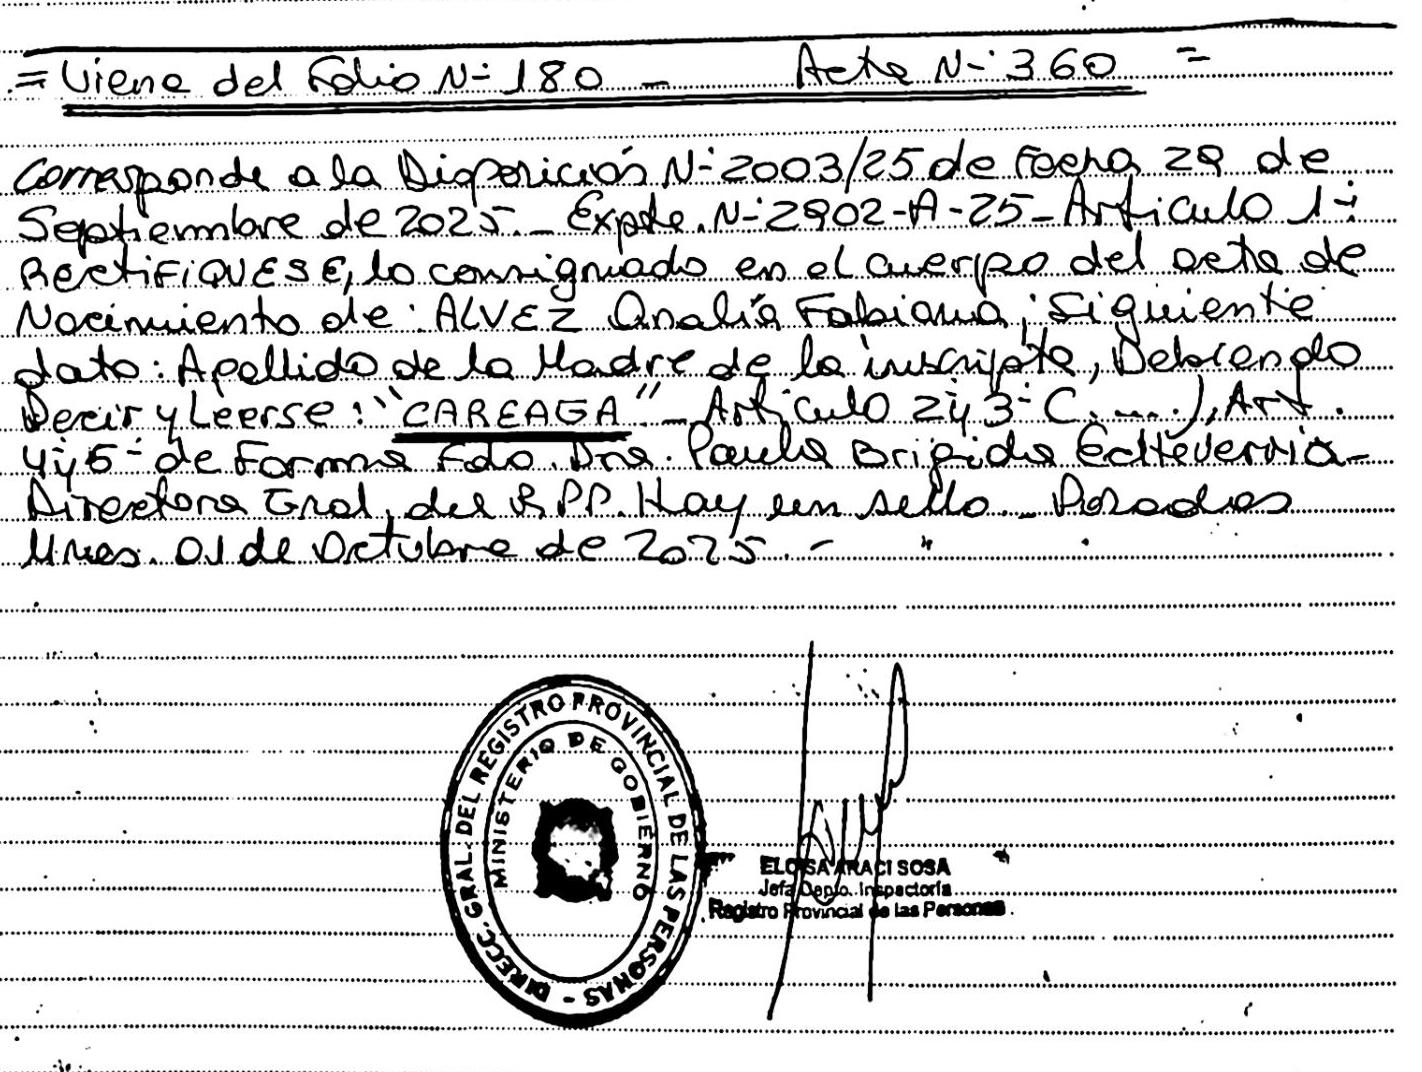 = Viene del Folio N-º 180 - Acta N-º 360 =
Corresponde a la Disposición N-º 2003/25 de Fecha 29 de
Septiembre de 2025.- Expte. N-º 2902-A-25- Artículo 1-º:
RECTIFIQUESE, lo consignado en el cuerpo del acta de
Nacimiento de: ALVEZ Analía Fabiana; Siguiente
dato: Apellido de la Madre de la inscripta, Debiendo
Decir y Leerse: "CAREAGA"- Artículo 2 y 3-º C.....), Art.
4 y 5-º de Forma Fdo. Dra. Paula Brigida Echeverria-
Directora Gral. del R.P.P. Hay un sello.- Posadas
Mnes. 01 de Octubre de 2025.-
DIRECC. GRAL. DEL REGISTRO PROVINCIAL DE LAS PERSONAS -
MINISTERIO DE GOBIERNO
ELOISA ARACI SOSA
Jefa Depto. Inspectoría
Registro Provincial de las Personas